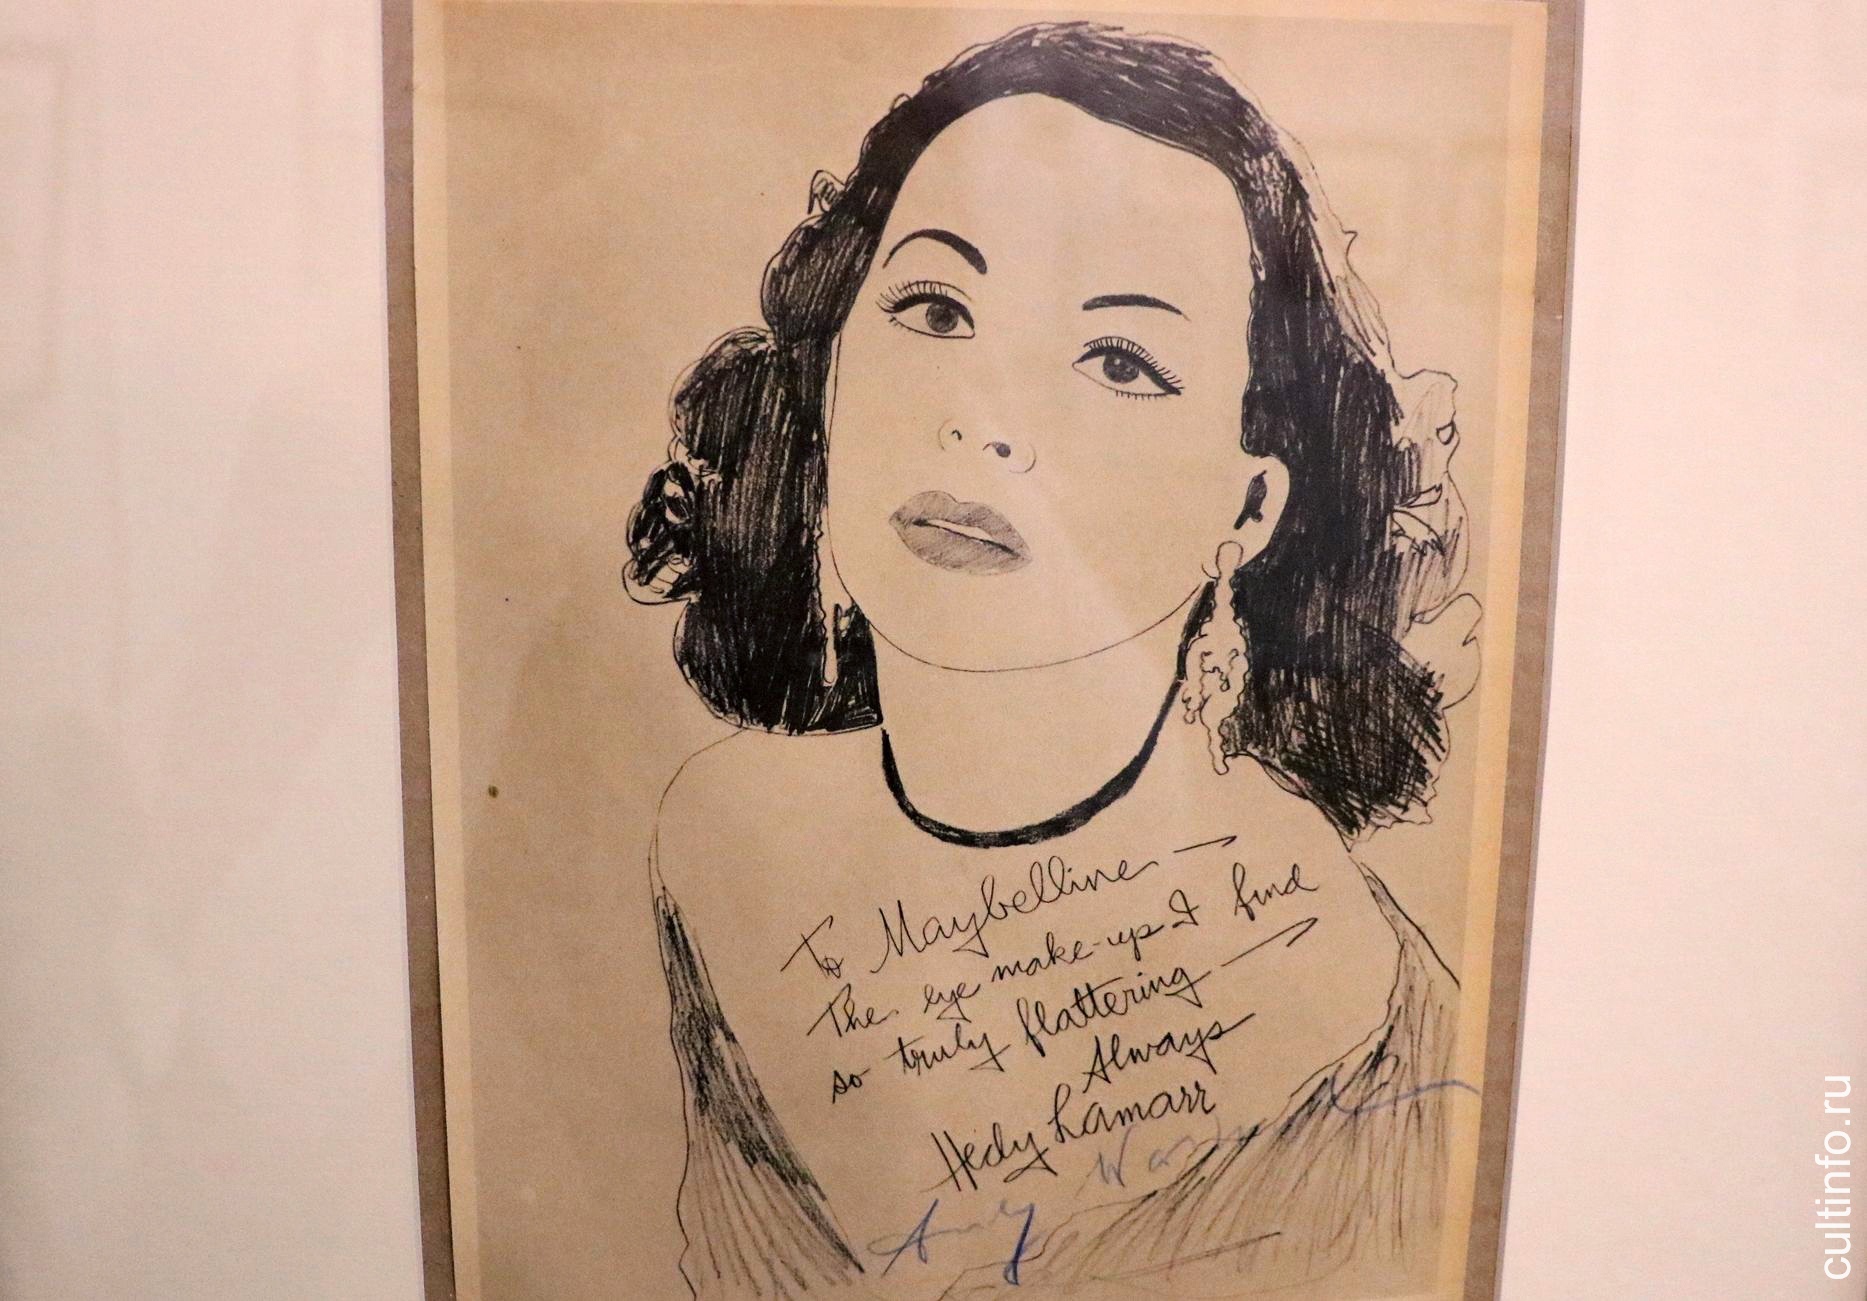 To Maybelline
The eye make-up I find
so truly flattering
Always
Hedy Lamarr
Andy Warhol
cultinfo.ru